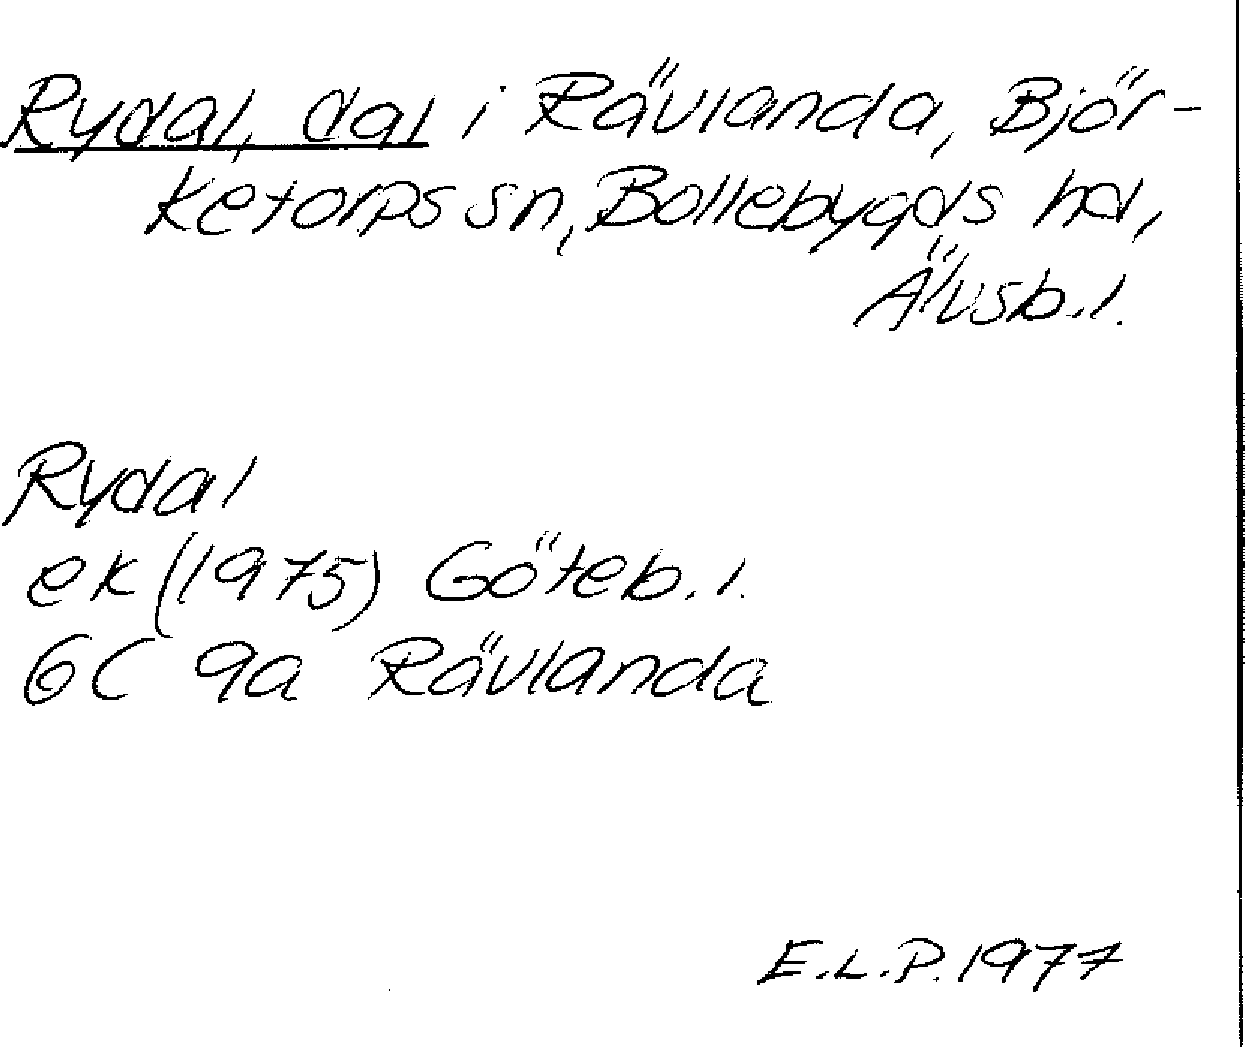 Rydal, dal i Rävlanda, Björ-
ketorps sn, Bollebygds hd,
Älvsb. l.
Rydal
ek (1975) Göteb. l.
6C 9a Rävlanda
E.L.P. 1977